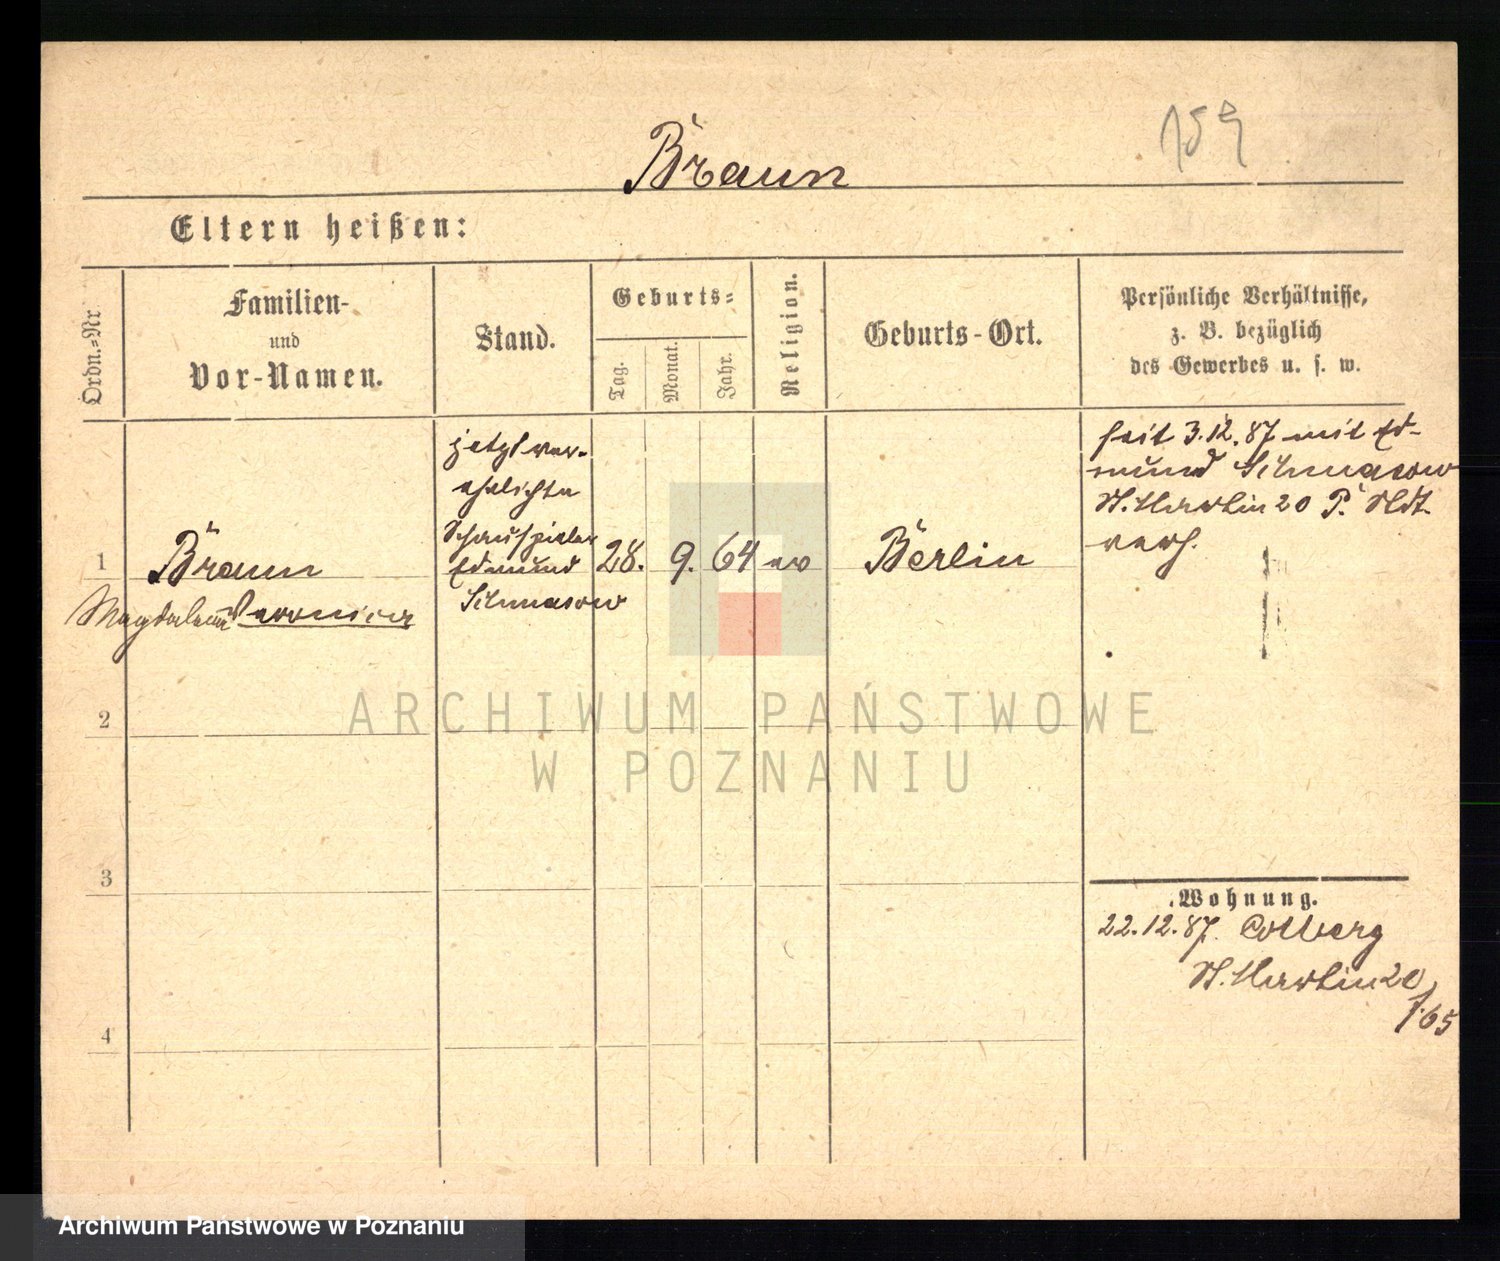 159
Braun
Eltern heißen:
Ordn.=Nr
Familien-
und
Vor-Namen.
Stand.
Geburts=
Tag.
Monat.
Jahr.
Religion.
Geburts-Ort.
Persönliche Verhältnisse,
z. B. bezüglich
des Gewerbes u. s. w.
1
Braun
Magdalena Veronica
jetzt ver-
ehelichte
Schauspieler
Edmund
Schmasow
28. 9. 64 ev
Berlin
seit 3.12.87 mit Ed-
mund Schmasow
St. Martin 20 P.
verh.
2
3
4
Wohnung.
22.12.87. Colberg
St. Martin 20
f. 65
ARCHIWUM PAŃSTWOWE
W POZNANIU
Archiwum Państwowe w Poznaniu